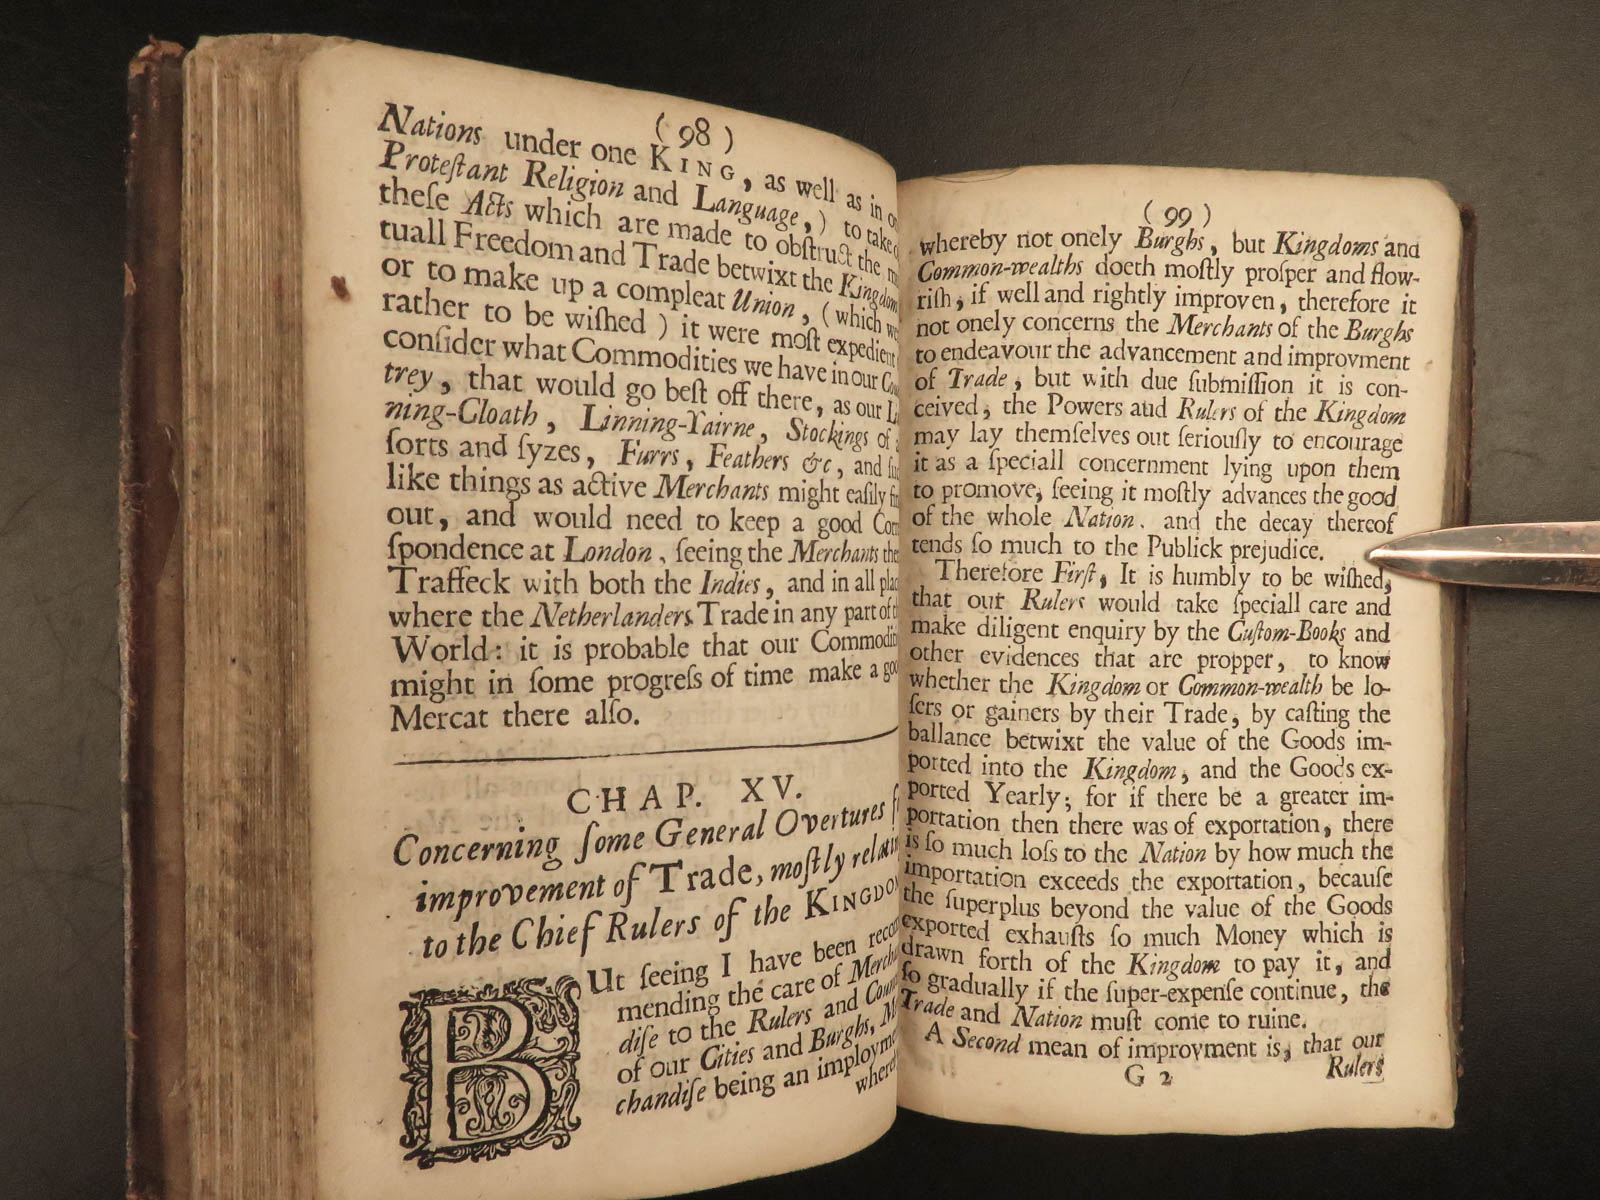 (98)
Nations under one KING, as well as in
Proteſtant Religion and Language,) to take
theſe Acts which are made to obſtruct the
tuall Freedom and Trade betwixt the Kingdom
or to make up a compleat Union, (which
rather to be wiſhed) it were moſt expedient
conſider what Commodities we have in our
trey, that would go beſt off there, as our
ning-Cloath, Linning-Yairne, Stockings of
ſorts and ſyzes, Furrs, Feathers &c, and
like things as active Merchants might eaſily
out, and would need to keep a good
ſpondence at London, ſeeing the Merchants
Traffeck with both the Indies, and in all
where the Netherlanders Trade in any part of
World: it is probable that our
might in ſome progreſs of time make a
Mercat there alſo.
CHAP. XV.
Concerning ſome General Overtures
improvement of Trade, moſtly
to the Chief Rulers of the
BUt ſeeing I have been
mending the care of
diſe to the Rulers and
of our Cities and Burghs,
chandiſe being an
(99)
whereby not onely Burghs, but Kingdoms and
Common-wealths doeth moſtly proſper and flow-
riſh, if well and rightly improven, therefore it
not onely concerns the Merchants of the Burghs
to endeavour the advancement and improvment
of Trade, but with due ſubmiſſion it is con-
ceived, the Powers and Rulers of the Kingdom
may lay themſelves out ſeriouſly to encourage
it as a ſpeciall concernment lying upon them
to promove, ſeeing it moſtly advances the good
of the whole Nation. and the decay thereof
tends ſo much to the Publick prejudice.
Therefore Firſt, It is humbly to be wiſhed,
that our Rulers would take ſpeciall care and
make diligent enquiry by the Cuſtom-Books and
other evidences that are propper, to know
whether the Kingdom or Common-wealth be lo-
ſers or gainers by their Trade, by caſting the
ballance betwixt the value of the Goods im-
ported into the Kingdom, and the Goods ex-
ported Yearly; for if there be a greater im-
portation then there was of exportation, there
is ſo much loſs to the Nation by how much the
importation exceeds the exportation, becauſe
the ſuperplus beyond the value of the Goods
exported exhauſts ſo much Money which is
drawn forth of the Kingdom to pay it, and
ſo gradually if the ſuper-expenſe continue, the
Trade and Nation muſt come to ruine.
A Second mean of improvment is, that our
G 2 Rulers